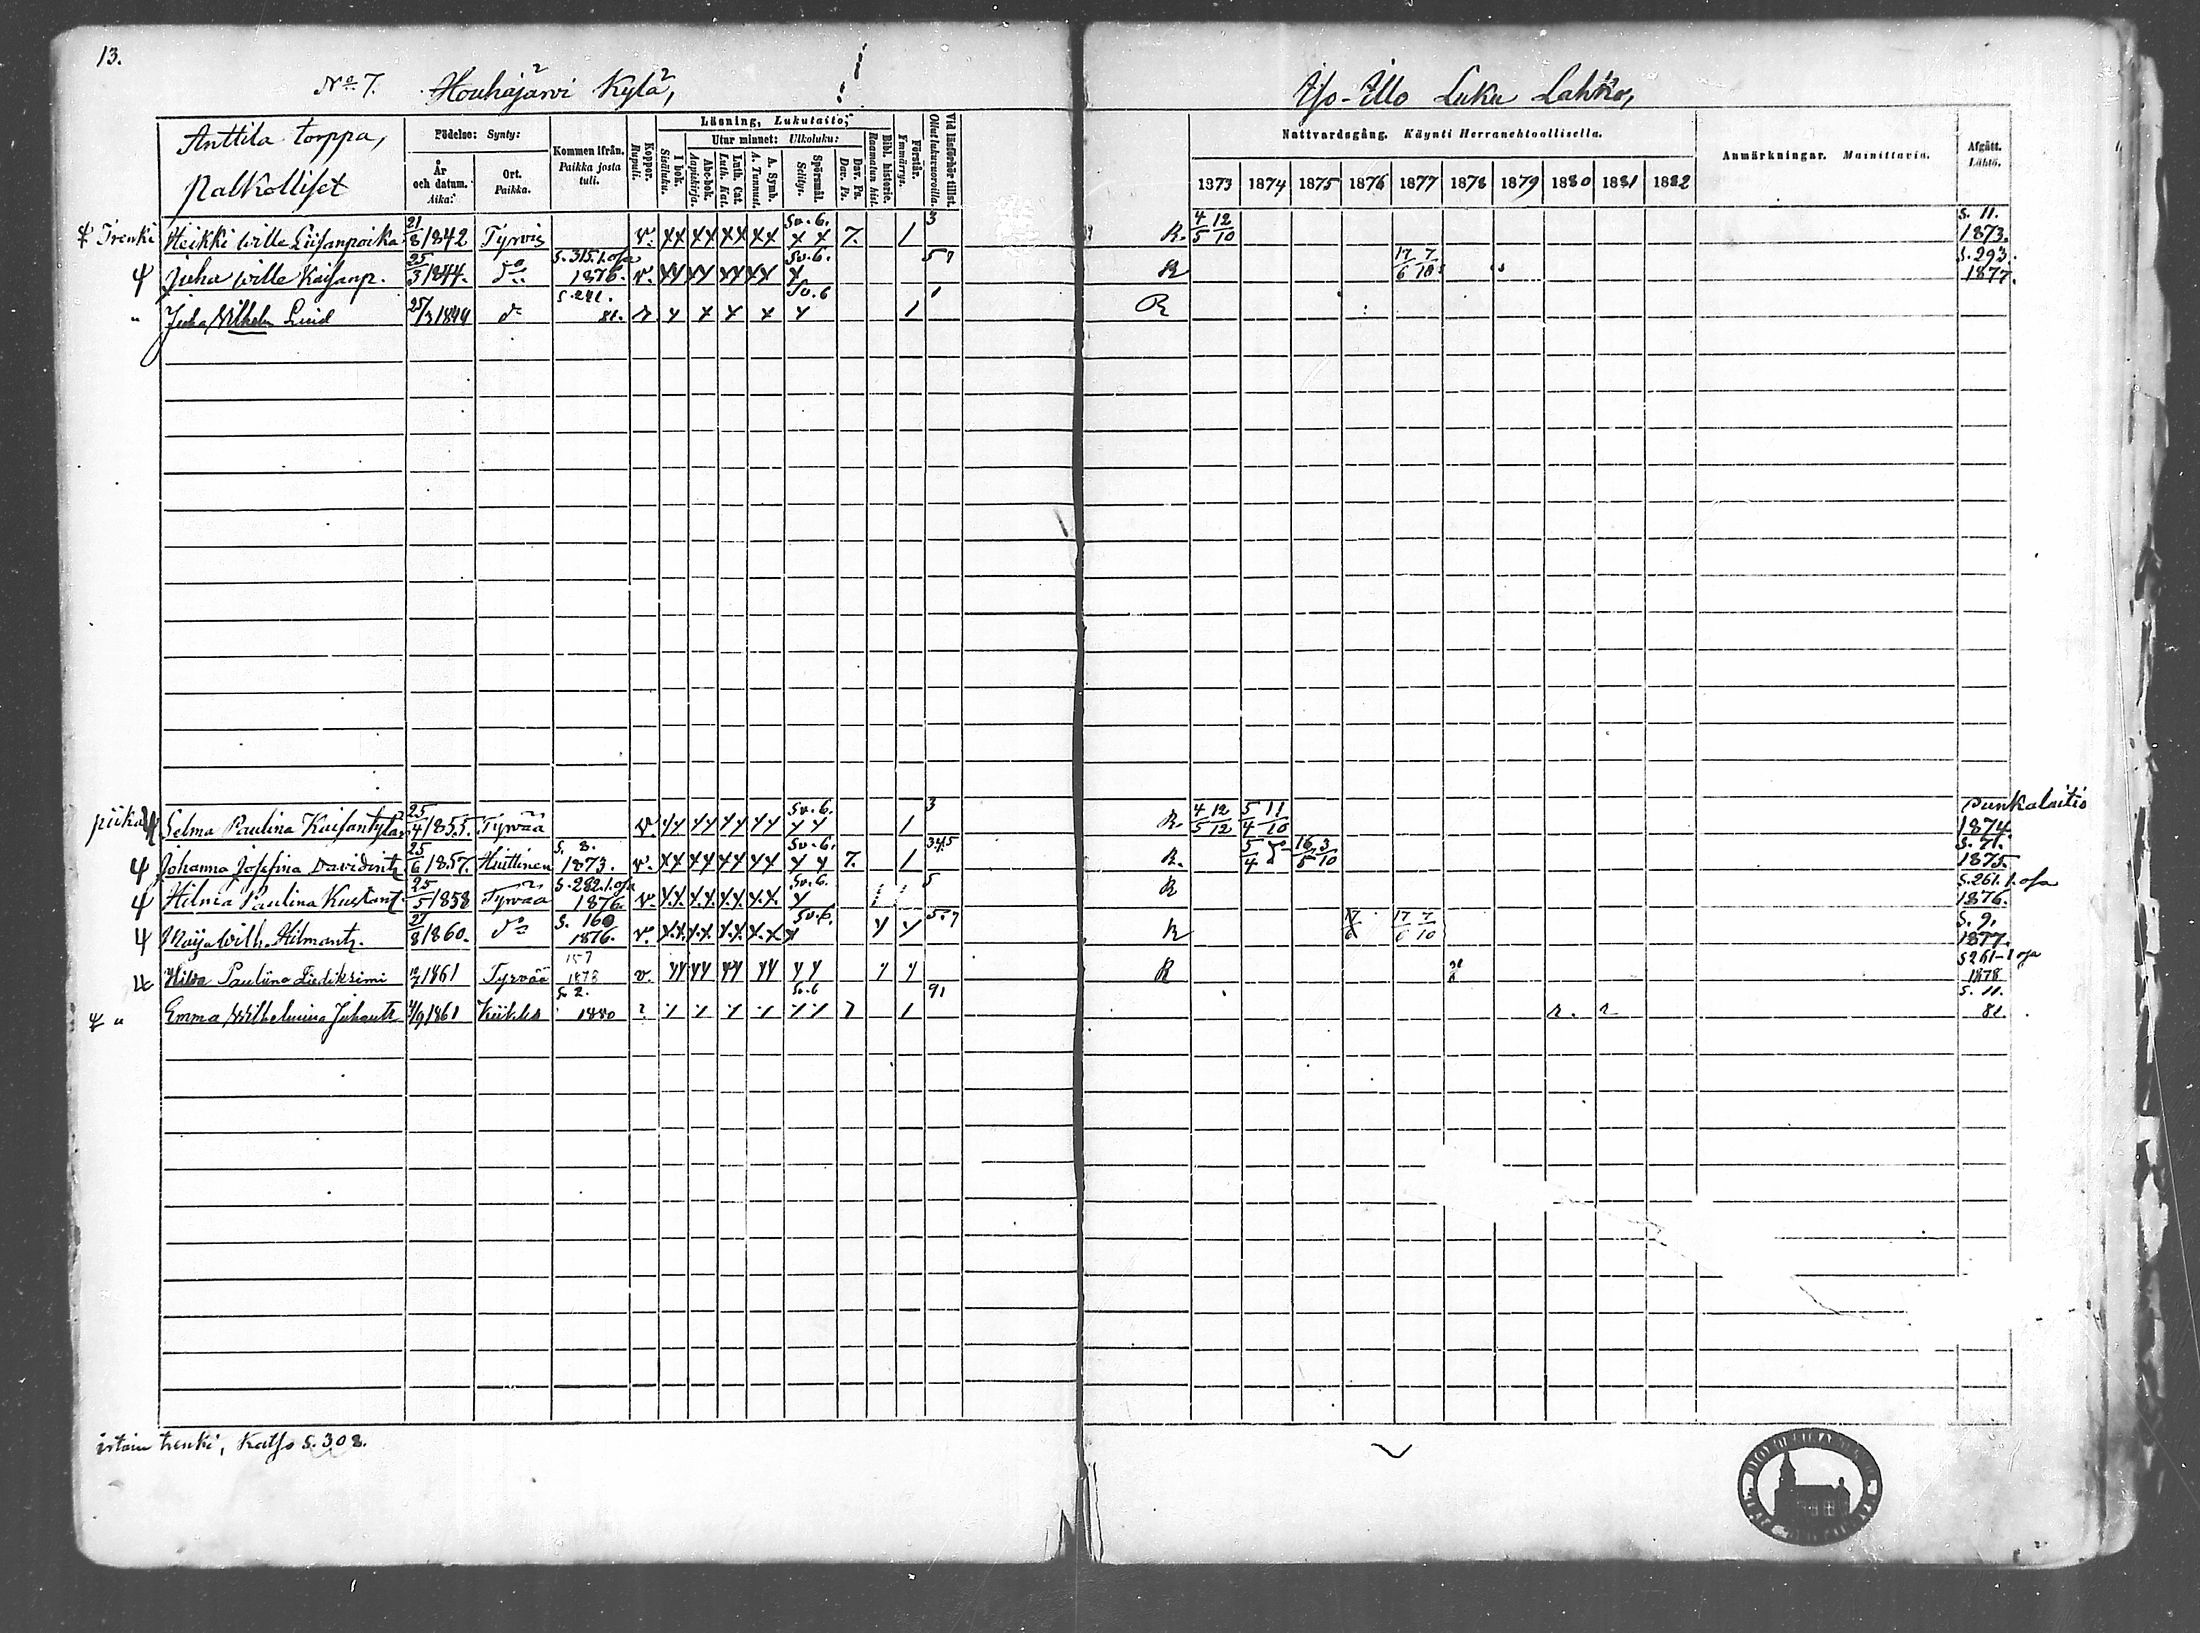 13.
No 7. Houhajärvi Kylä,
Iso-Illo Luku Lahko,
Anttila torppa,
Palkolliset
Födelse: Synty:
År och datum. Aika:
Ort. Paikka.
Kommen ifrån. Paikka josta tuli.
Koppor. Rupuli.
Läsning, Lukutaito;
I bok. Sisäluku.
Utur minnet: Ulkoluku:
Abc-bok. Aapiskirja.
Luth. Cat. Luth. Kat.
A. Symb. A. Tunnust.
Spörsmål. Selitys.
Dav. Ps. Dav. Ps.
Bibl. historie. Raamatun hist.
Förstår. Ymmärrys.
Vid läsförhör tillst. Ollut lukuwuoroilla.
Nattvardsgång. Käynti Herranehtoollisella.
1873 1874 1875 1876 1877 1878 1879 1880 1881 1882
Anmärkningar. Mainittavia.
Afgått. Lähtö.
Trenki Heikki Wille Liisanpoika 21/8 1842 Tyrvis v. xx xx xx xx Sv. 6. x x 7. / 3 R. 4/5 12/10 S. 11. 1873.
Juha Wille Kaisanp. 25/3 1844. do S. 315. 1. osa 1876. v. xx xx xx xx Sv. 6. x 5 7 R 17/6 7/10 S. 293. 1877.
" Juha Wilhelm Lind 25/3 1844 do S. 241. 81. x x x x Sv. 6 x / 1 R
piika Selma Paulina Kaisantytär 25/4 1855. Tyrvää v. Sv. 6. / 3 R. 4/5 12/12 5/4 11/10 Punkalaitio 1874.
Johanna Josefina Davidint. 25/6 1857. Huittinen S. 8. 1873. v. xx xx xx xx Sv. 6. x x 7. / 345 R. 5/4 16/5 3/10 S. 71. 1875.
Hilma Paulina Kustant. 25/5 1858 Tyrvää S. 282. 1. osa 1876. v. x.x. x.x. x.x. x.x. Sv. 6. x 5 R S. 261. 1. osa 1876.
Maija Wilh. Hilmantr. 27/8 1860. do S. 160 1876. v. x.x. x.x. x.x. x.x Sv. 6. x 5. 7 R 17/6 17/6 7/10 S. 9. 1877.
Hilda Pauliina 1861 Tyrvää 157 1878 v. R S 261-1 osa 1878
" Emma Wilhelmina Juhantr 4/9 1861 Kiikka S. 2. 1880 Sv. 6 7 / 91 S. 11. 81.
trenki, Katso S. 308.